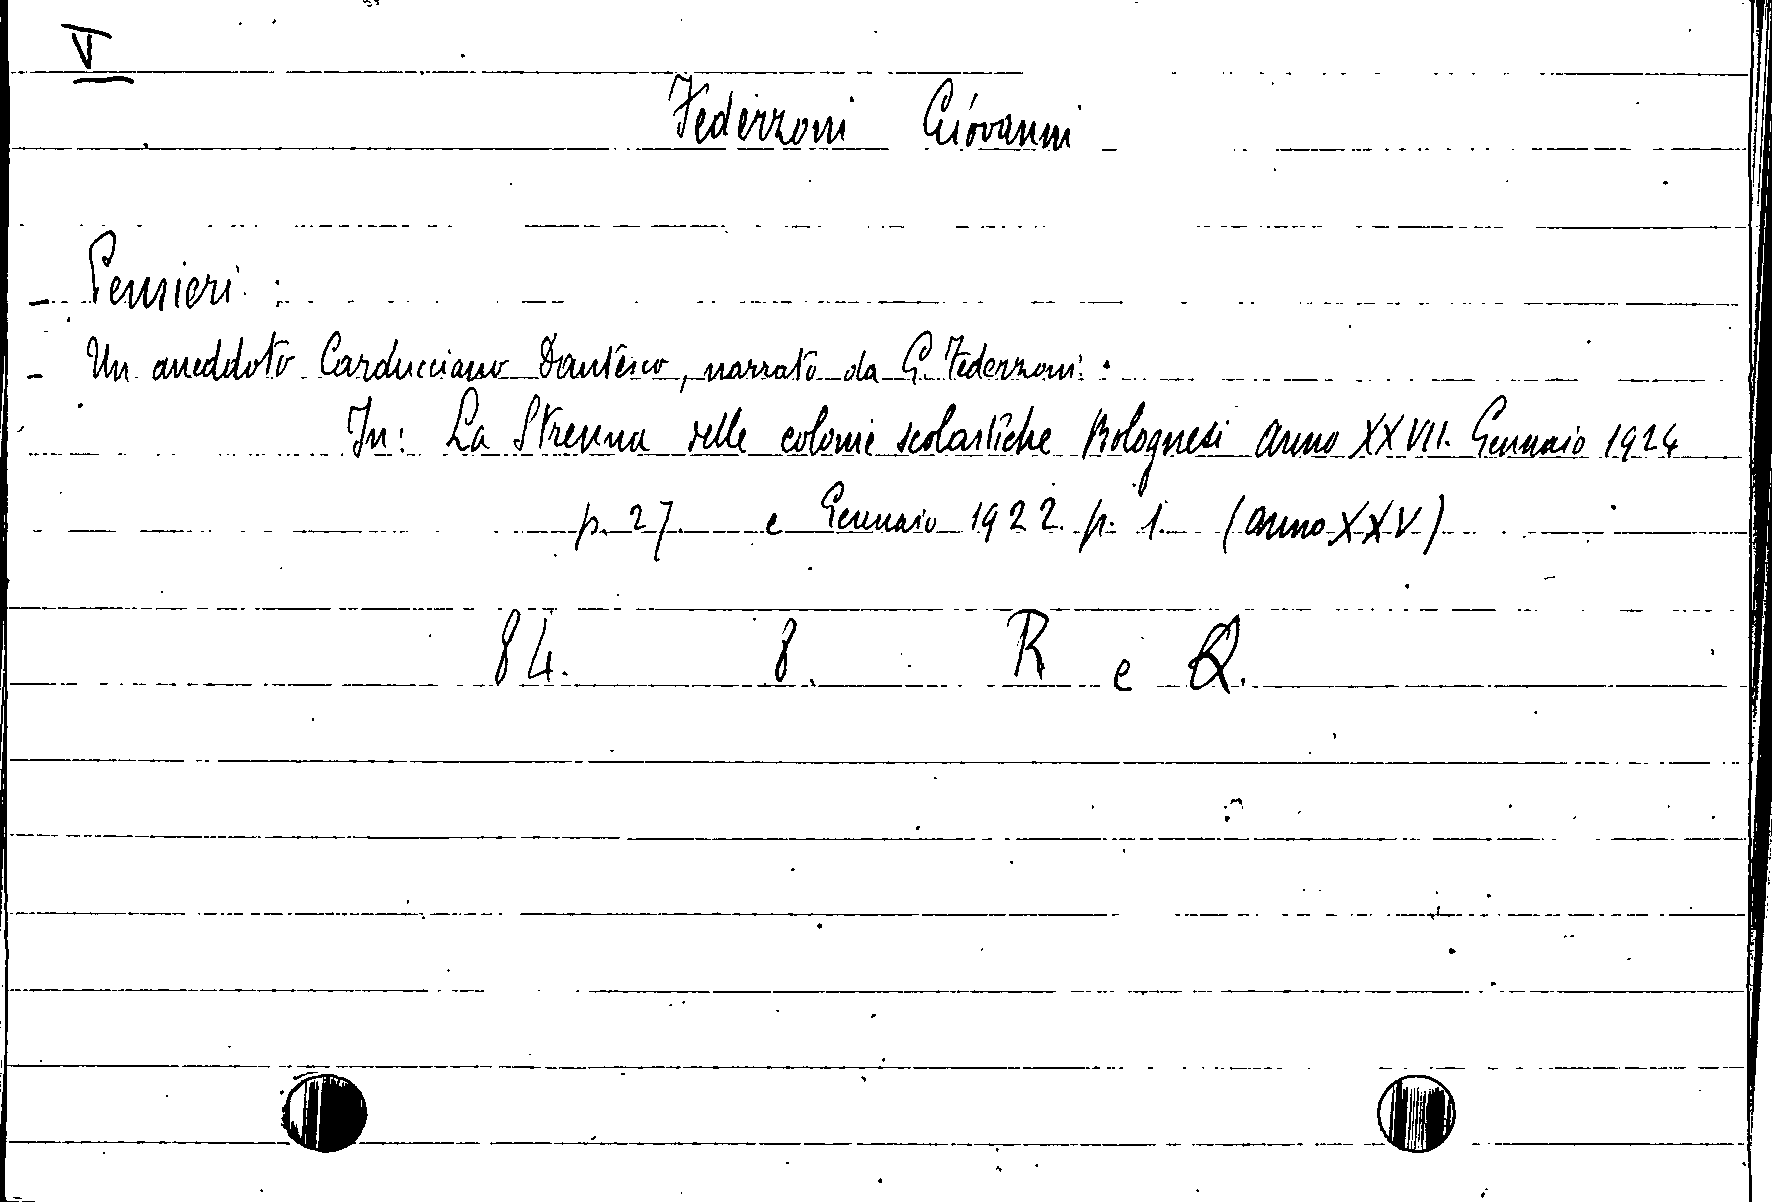 V
Federzoni Giovanni
- Pensieri :
- Un aneddoto Carducciano Dantesco, narrato da G. Federzoni.
In: La Strenna delle colonie scolastiche Bolognesi anno XXVII. Gennaio 1924
p. 27. e Gennaio 1922. p. 1. (anno XXV)
84. 8. R e Q.